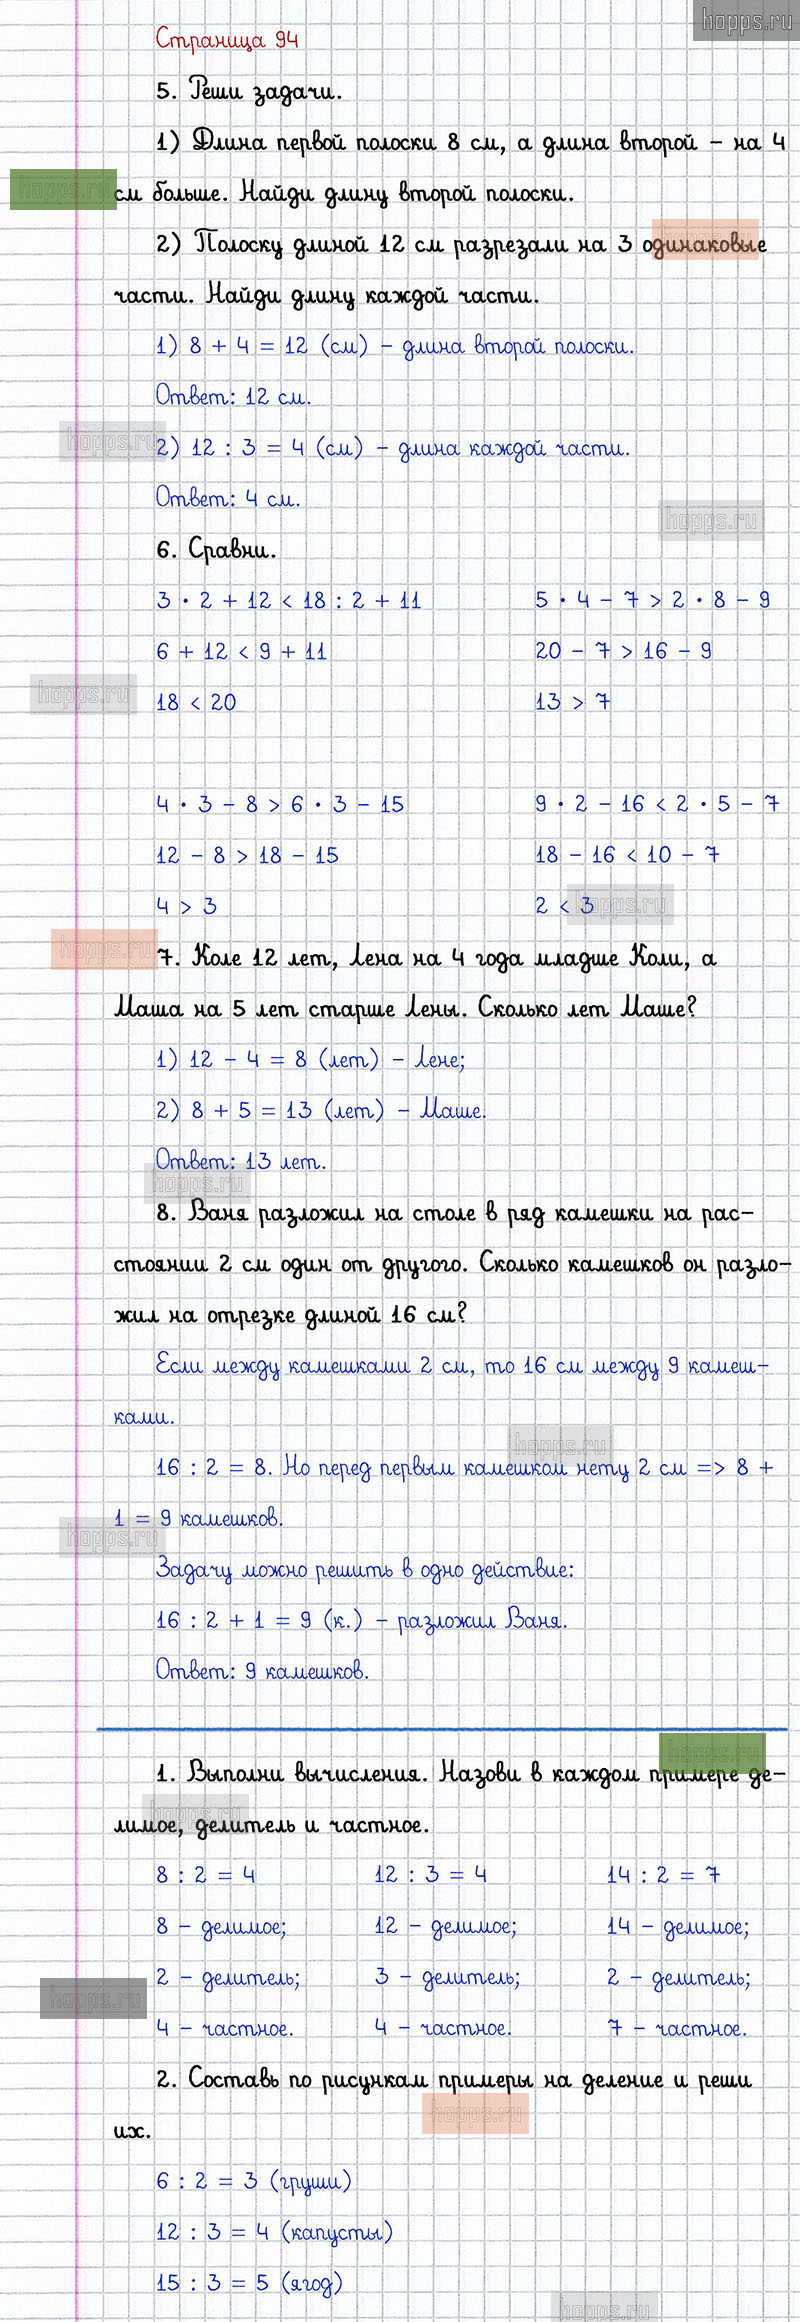 hopps.ru
Страница 94
5. Реши задачи.
1) Длина первой полоски 8 см, а длина второй – на 4
hopps.ru
см больше. Найди длину второй полоски.
hopps.ru
2) Полоску длиной 12 см разрезали на 3 одинаковые
части. Найди длину каждой части.
1) 8 + 4 = 12 (см) – длина второй полоски.
Ответ: 12 см.
hopps.ru
2) 12 : 3 = 4 (см) – длина каждой части.
Ответ: 4 см.
hopps.ru
6. Сравни.
3 · 2 + 12 < 18 : 2 + 11 5 · 4 – 7 > 2 · 8 – 9
6 + 12 < 9 + 11 20 – 7 > 16 – 9
hopps.ru
18 < 20 13 > 7
4 · 3 – 8 > 6 · 3 – 15 9 · 2 – 16 < 2 · 5 – 7
12 – 8 > 18 – 15 18 – 16 < 10 – 7
4 > 3 2 < 3
hopps.ru
hopps.ru
7. Коле 12 лет, Лена на 4 года младше Коли, а
Маша на 5 лет старше Лены. Сколько лет Маше?
1) 12 – 4 = 8 (лет) – Лене;
2) 8 + 5 = 13 (лет) – Маше.
Ответ: 13 лет.
hopps.ru
8. Ваня разложил на столе в ряд камешки на рас–
стоянии 2 см один от другого. Сколько камешков он разло–
жил на отрезке длиной 16 см?
Если между камешками 2 см, то 16 см между 9 камеш–
ками.
hopps.ru
16 : 2 = 8. Но перед первым камешком нету 2 см => 8 +
1 = 9 камешков.
hopps.ru
Задачу можно решить в одно действие:
16 : 2 + 1 = 9 (к.) – разложил Ваня.
Ответ: 9 камешков.
hopps.ru
1. Выполни вычисления. Назови в каждом примере де–
hopps.ru
лимое, делитель и частное.
8 : 2 = 4 12 : 3 = 4 14 : 2 = 7
8 – делимое; 12 – делимое; 14 – делимое;
2 – делитель; 3 – делитель; 2 – делитель;
hopps.ru
4 – частное. 4 – частное. 7 – частное.
2. Составь по рисункам примеры на деление и реши
hopps.ru
их.
6 : 2 = 3 (груши)
12 : 3 = 4 (капусты)
15 : 3 = 5 (ягод)
hopps.ru